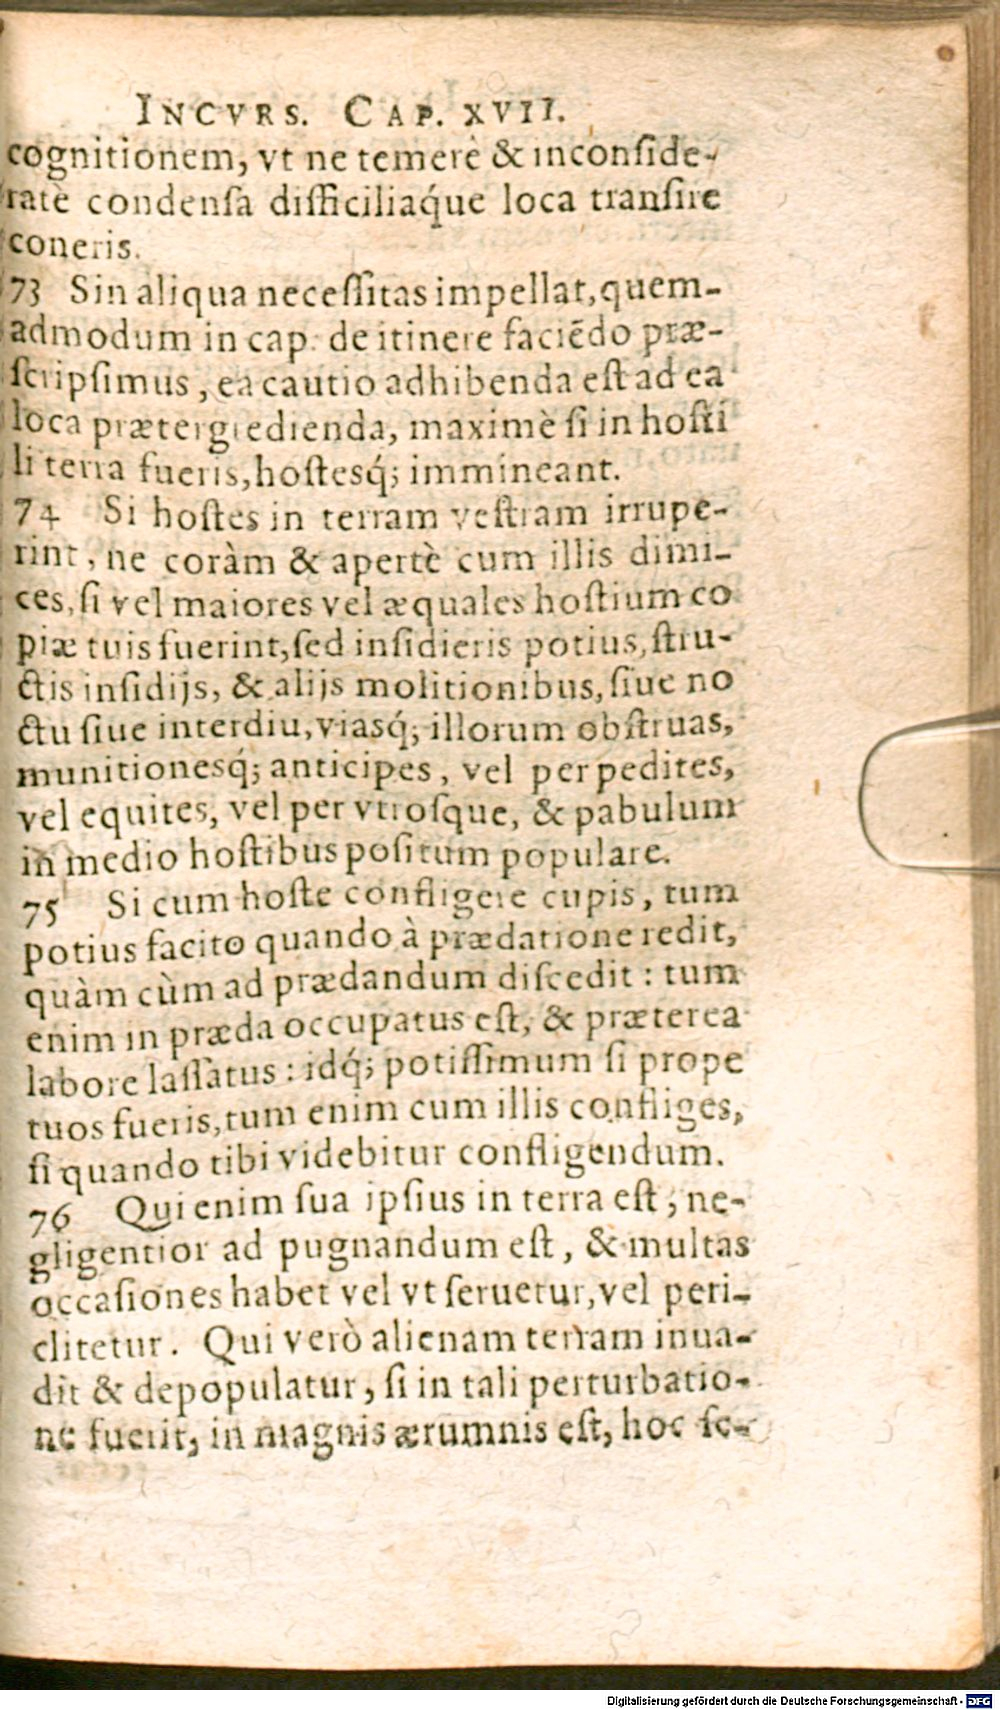 INCVRS. CAP. XVII.
cognitionem, vt ne temerè & inconſide-
ratè condenſa difficiliaq́ue loca tranſire
coneris.
73 Sin aliqua neceſſitas impellat, quem-
admodum in cap. de itinere faciēdo præ-
ſcripſimus, ea cautio adhibenda eſt ad ea
loca prætergredienda, maximè ſi in hoſti
li terra fueris, hoſtesq́; immineant.
74 Si hoſtes in terram veſtram irrupe-
rint, ne coràm & apertè cum illis dimi-
ces, ſi vel maiores vel æquales hoſtium co
piæ tuis fuerint, ſed inſidieris potius, ſtru-
ctis inſidijs, & alijs molitionibus, ſiue no
ctu ſiue interdiu, viasq́; illorum obſtruas,
munitionesq́; anticipes, vel per pedites,
vel equites, vel per vtroſque, & pabulum
in medio hoſtibus poſitum populare.
75 Si cum hoſte confligere cupis, tum
potius facito quando à prædatione redit,
quàm cùm ad prædandum diſcedit: tum
enim in præda occupatus eſt, & præterea
labore laſſatus: idq́; potiſſimum ſi prope
tuos fueris, tum enim cum illis confliges,
ſi quando tibi videbitur confligendum.
76 Qui enim ſua ipſius in terra eſt, ne-
gligentior ad pugnandum eſt, & multas
occaſiones habet vel vt ſeruetur, vel peri-
clitetur. Qui verò alienam terram inua-
dit & depopulatur, ſi in tali perturbatio-
ne fuerit, in magnis ærumnis eſt, hoc ſe-
Digitalisierung gefördert durch die Deutsche Forschungsgemeinschaft - DFG